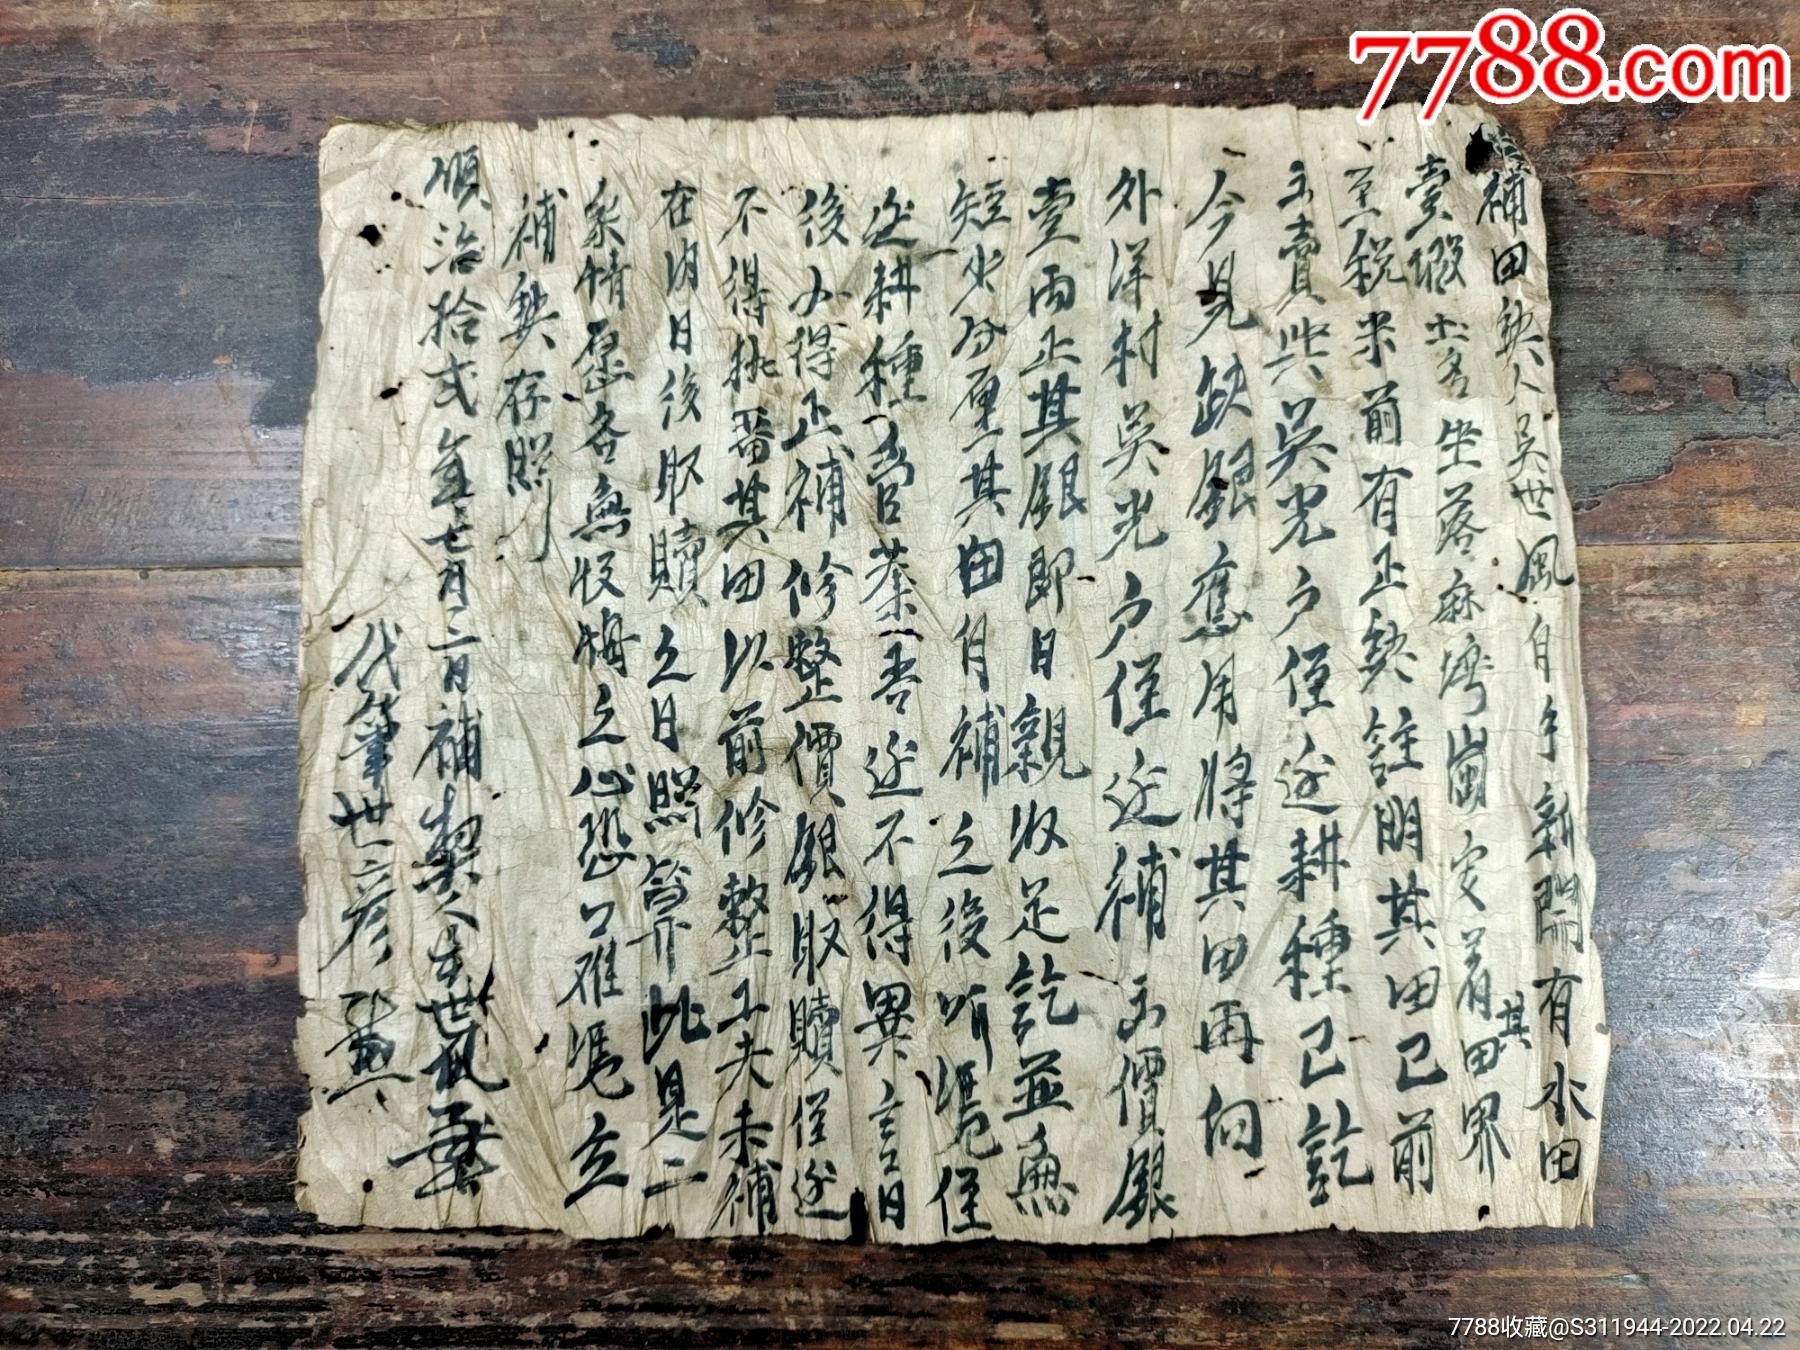 7788.com
補田契人吴世風自手新開有水田
壹塅土名坐落麻灣崗安着其田界
至税米前有正契註明其田已前
立賣與吴光户侄邊耕種已訖
今見缺銀應用將其田再向
外洋村吴光户侄邊補出價銀
壹両正其銀即日親收足訖並無
短少分厘其田自補之後听凴侄
边耕種管業吾边不得異言日
後办得正補修整價銀取贖侄边
不得执畨其田以前修整工夫未補
在内日後取贖之日照算此是二
家情愿各無收悔之心恐口难凴立
補契存照
順治拾弍年七月二日補契人吴世風
代筆世彦
7788收藏@S311944-2022.04.22